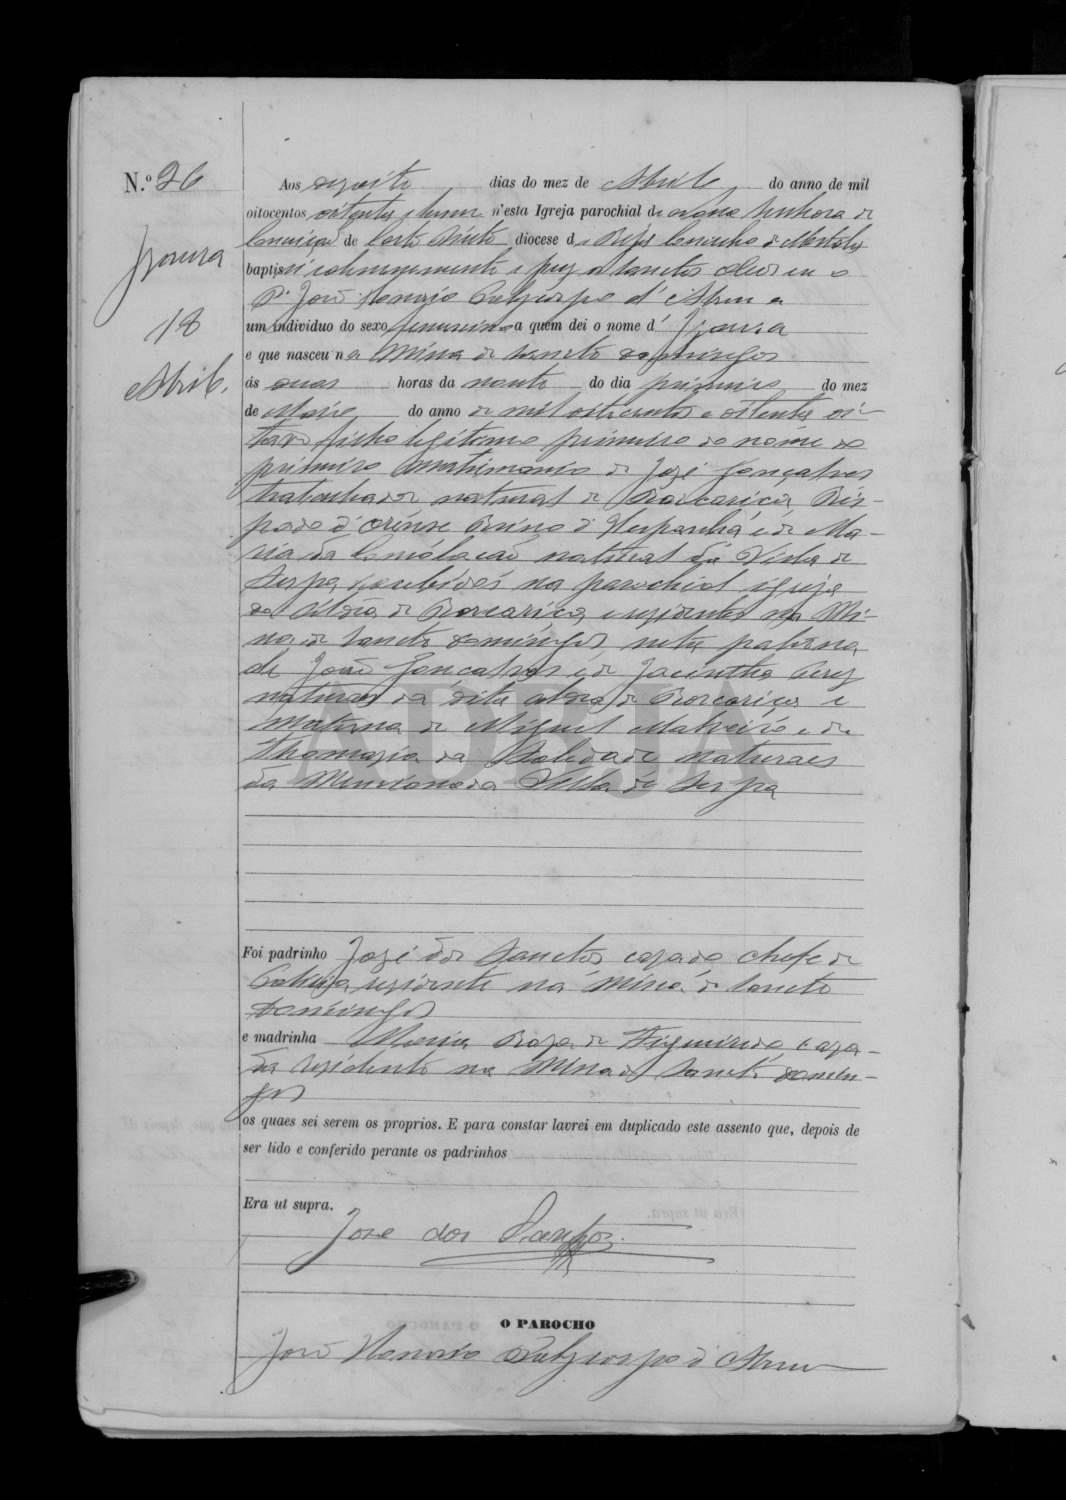 N.º 26
Izaura
18
Abril.
Aos dezoito dias do mez de Abril do anno de mil
oitocentos oitenta e hum n'esta Igreja parochial de Nossa Senhora da
Conceição de Corte Pinto diocese de Beja Concelho de Mertola
baptisei solemnemente e puz os Sanctos Oleos eu o
P. João d'Abreu a
um individuo do sexo femenino a quem dei o nome d' Izaura
e que nasceu na Mina de Sancto Domingos
ás duas horas da noute do dia primeiro do mez
de Março do anno de mil oitocentos e oitenta
filha legitima primeira do nome do
primeiro matrimonio de José Gonçalves
trabalhador natural de Bis-
pado d'Orense Reino d'Hespanha e de Ma-
ria da natural da Villa de
Serpa recebidos na parochial igreja
da Aldêa de e rezidentes na Mi-
na de Sancto Domingos, neta paterna
de João Gonçalves e de Jacintha Perez
naturaes da dita aldea de e
Materna de Miguel e de
Thomazia da Soledade naturaes
da Mencionada Villa de Serpa
Foi padrinho José dos Sanctos cazado chefe de
rezidente na Mina de Sancto
Domingos
e madrinha Maria Roza de Figueiredo caza-
da rezidente na Mina de Sancto Domin-
gos
os quaes sei serem os proprios. E para constar lavrei em duplicado este assento que, depois de
ser lido e conferido perante os padrinhos
Era ut supra.
Jose dos Santos
O PAROCHO
João d'Abreu
ADBJA